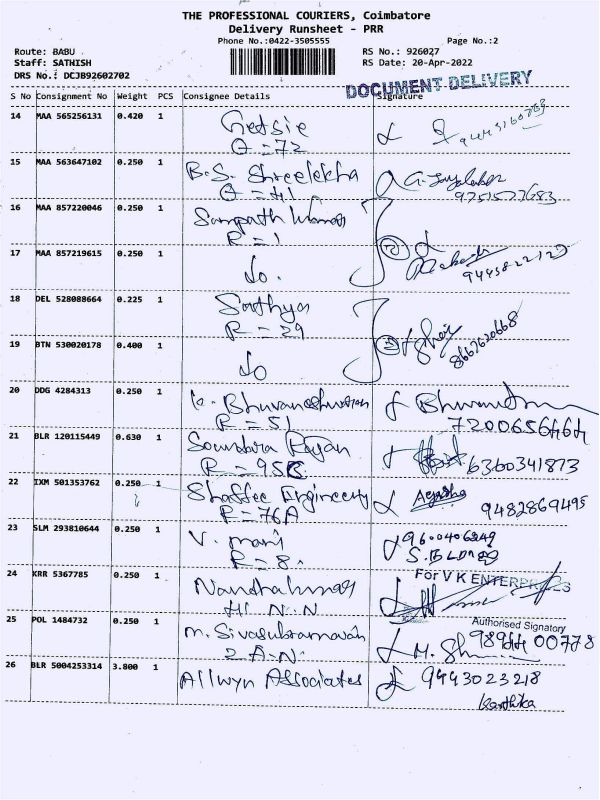 THE PROFESSIONAL COURIERS, Coimbatore
Delivery Runsheet - PRR
Phone No.:0422-3505555
Page No.:2
Route: BABU
RS No.: 926027
Staff: SATHISH
RS Date: 20-Apr-2022
DRS No.: DCJB92602702
DOCUMENT DELIVERY
S No Consignment No Weight PCS Consignee Details Signature
14 MAA 565256131 0.420 1 Getsie
Q = 72
15 MAA 563647102 0.250 1 B.S. Shreelekha
Q = 41
9751577683
16 MAA 857220046 0.250 1 Sampath Kumar
R = 1
17 MAA 857219615 0.250 1 do.
18 DEL 528088664 0.225 1 Sathya
R = 29
8667620668
19 BTN 530020178 0.400 1 do
20 DDG 4284313 0.250 1 K. Bhuvaneshwaran
R = 51
21 BLR 120115449 0.630 1 Soundara Rajan
R = 95C
6360341873
22 IXM 501353762 0.250 1 Shaffee Engineery
R = 76A
9482869495
23 SLM 293810644 0.250 1 V. mani
R = 8.
24 KRR 5367785 0.250 1 Nandhakumar
H. N. N
For V K ENTERPRISES
Authorised Signatory
25 POL 1484732 0.250 1 m. Sivasubramavan
2 A.N.
26 BLR 5004253314 3.800 1 Allwyn Associates 9443023218
Karthika